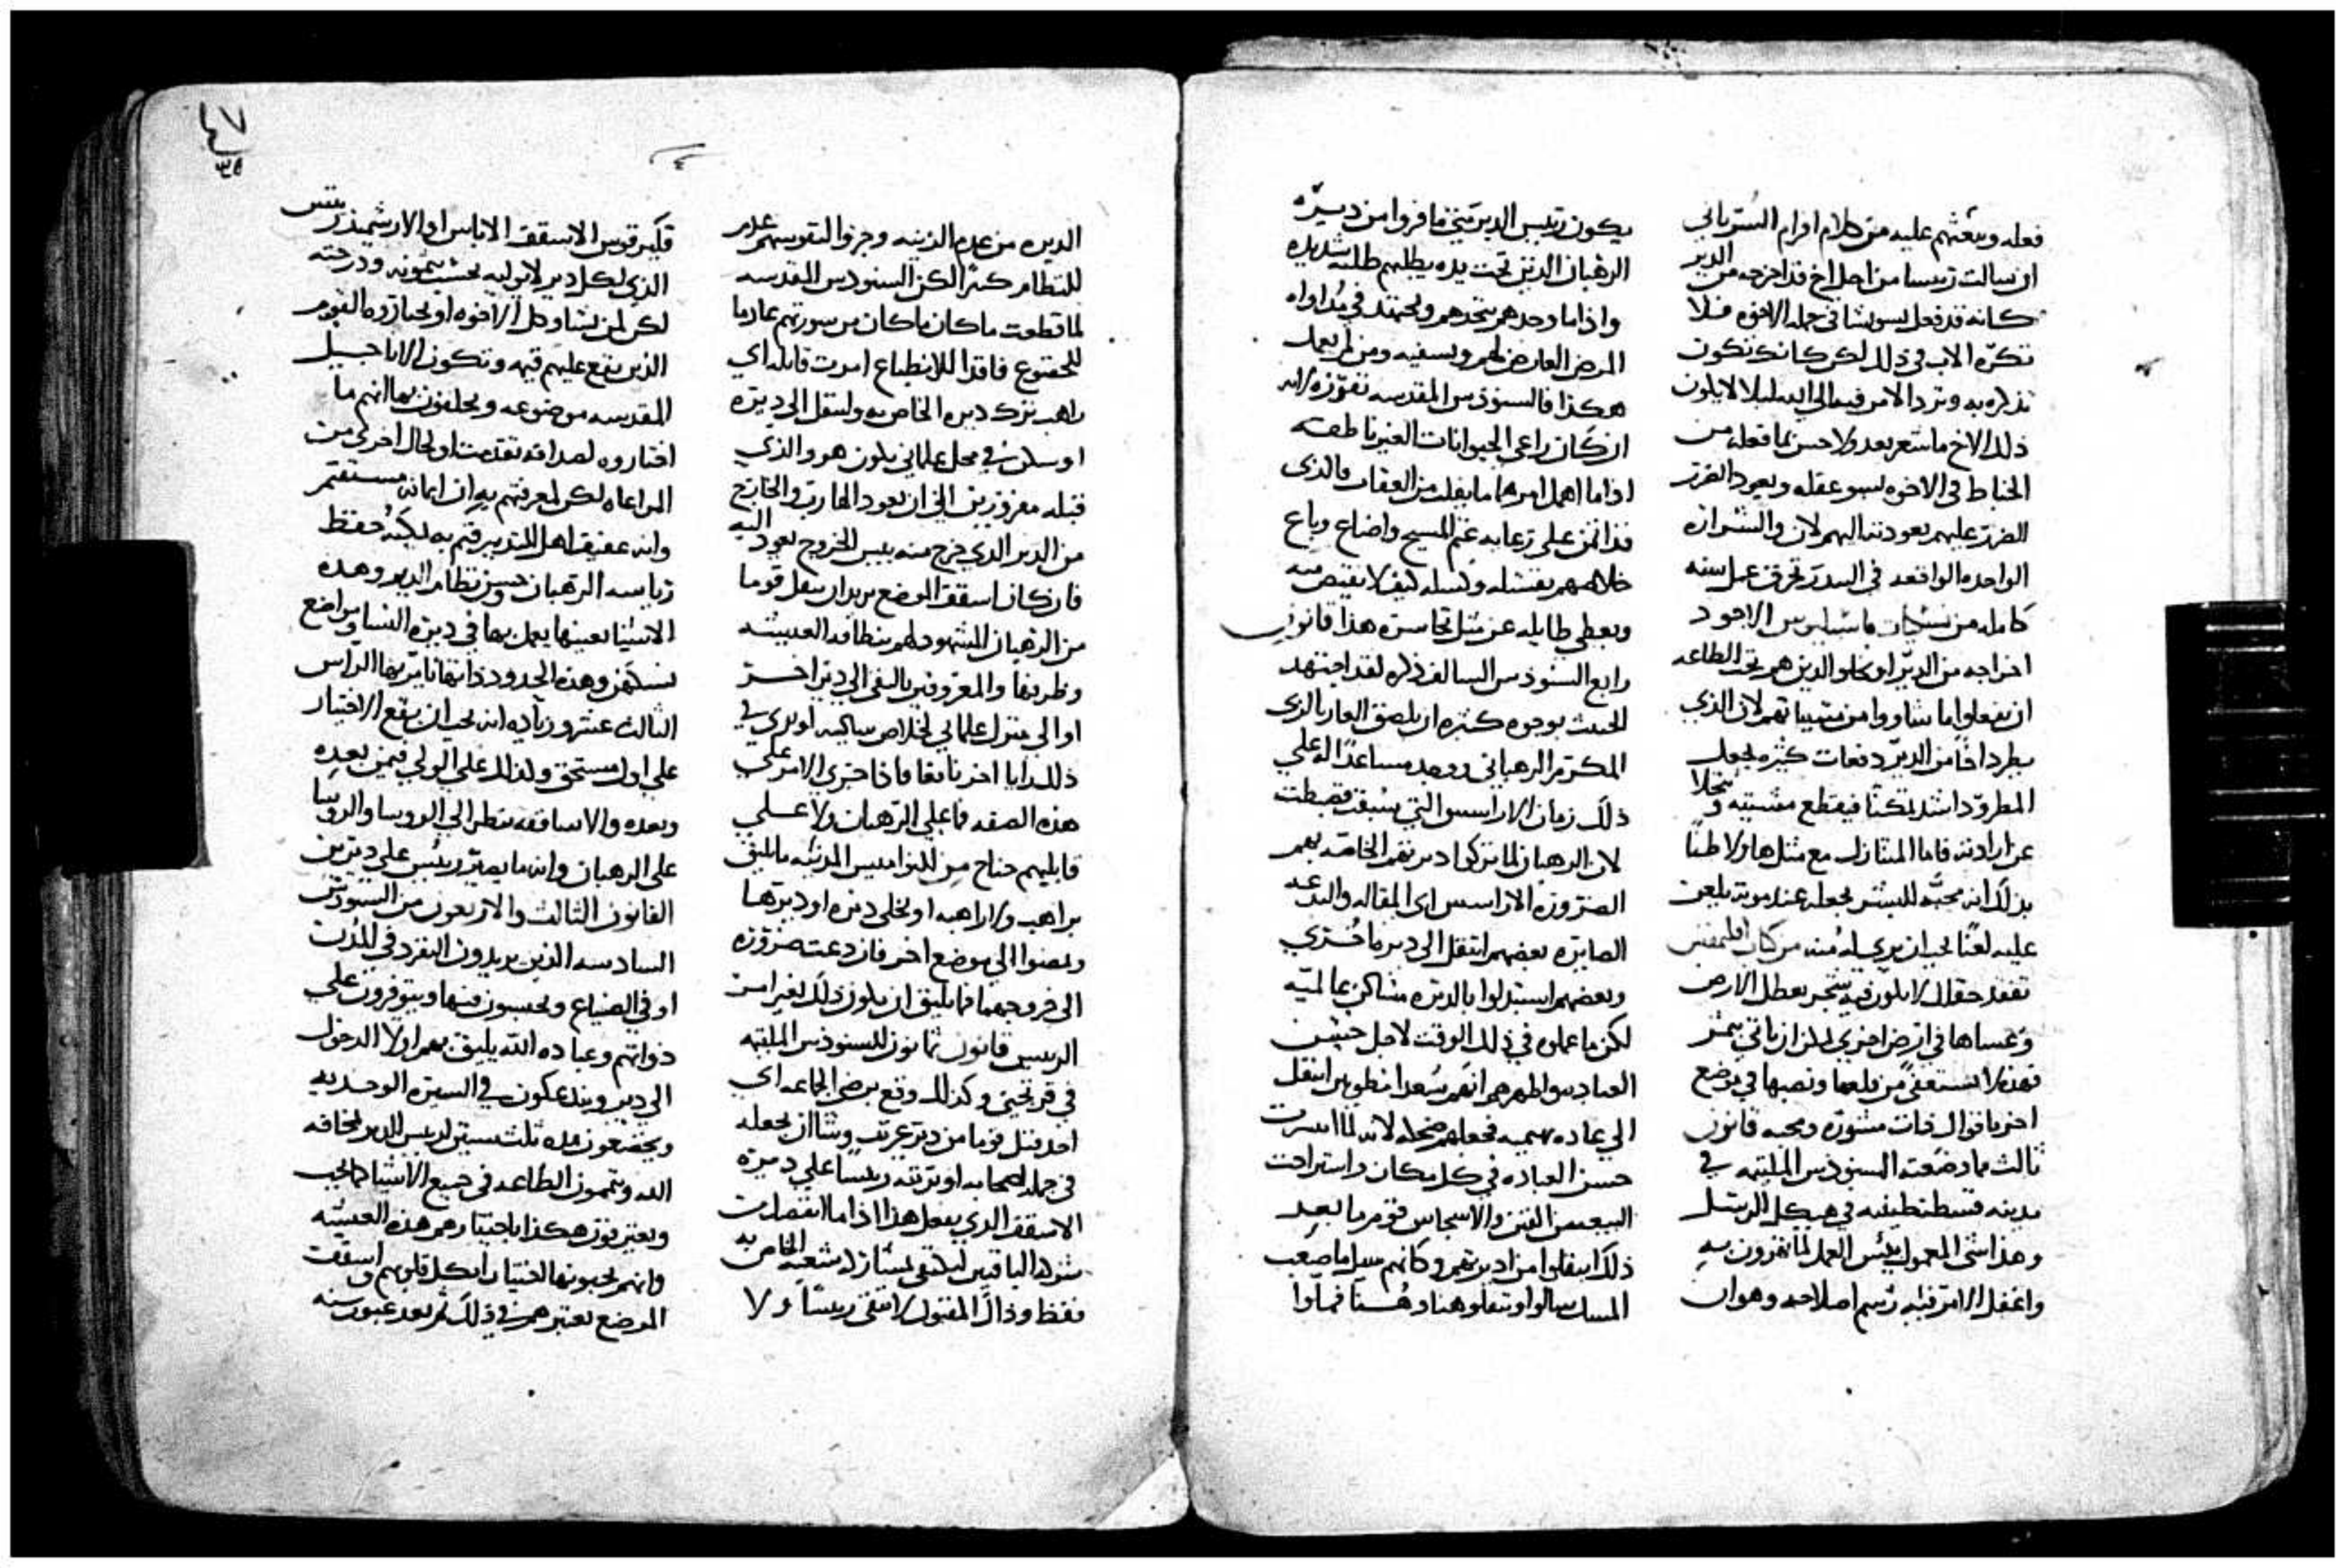 فعله ويبعثهم عليه من كلام افرام السرياني
ان سالت رييسا من اجل اخ قد اخرجه من الدير
كانه قد فعل سو شا في جمله الاخوه فلا
تكره الاب في ذلك لكن كانك تكون
تذكره به وترد الامر فيه الي الله ليلا يكون
ذلك الاخ ما شعر بعد ولا حسن بما فعله من
الخباط في الاخوه بسو عقله ويعود الضرر
الضرر عليهم بعودته اليهم لان والشراره
الواحده الواقعه في البيدر تحرق عمل سنه
كامله من
اخراجه من الدير او تخلو الذين هم تحت الطاعه
ان يفعلوا ما شاووا من مشيياتهم لان الذي
يطرد اخا من الدير دفعات كثيره يجعل
المطرود اشد نكثا فيقطع مشيته و
عن ارادته فاما المتنازل مع مثل هاولا ظنا
بذلك انه محبه للبشر يجعله عند موته يلعن
عليه لعنا يجب ان يري له منه من كتاب اقليمقس
تفقد حقلك لا يكون فيه شجر يعطل الارض
وعساها في ارض اخري يمكن ان ياتي بثمر
فهذه لا تستعفي من قلعها ونصبها في موضع
اخر باقوال ذات مشوره ومحبه قانون
ثالث مما وضعته السنودس الملتيمه في
مدينه قسطنطينيه في هيكل الرسل
وهذا شي المعمول بيس العمل لما تقرون به
واغفل الامر فيه رسم اصلاحه وهو ان
يكون رييس الدير متي ما فروا من ديره
الرهبان الذين تحت يده يطلبهم طلبه شديده
واذا ما وجدهم يتخدهم ويجتهد في مداواه
المرض العارض لهم ويشفيه ومن لم يعمل
هكذا فالسنودس المقدسه تفرزه لانه
ان كان راعي الحيوانات الغير ناطقه
اذا ما اهمل امرها ما يفلت من العقاب فالذي
قد اتمن علي رعايه غنم المسيح واضاع وباع
خلاصهم بفشله وكسله كيف لا يقتص منه
ويعطي طايله عن مثل تجاسره هذا قانون
رابع السنودس السالف ذكره لقد اجتهد
الخبيث بوجوه كثيره ان يلصق العار بالزي
المكرم الرهباني ووجد مساعدا له علي
ذلك زمان الاراسس التي سبقت فضبطت
لان الرهبان لما تركوا ديرتهم الخاصه بهم
لضروره الاراسس اي المقاله والبدعه
الصايره بعضهم انتقل الي ديره اخري
وبعضهم استبدلوا بالديره مساكن عالميه
لكن ما عملوه في ذلك الوقت لاجل حسن
العباده واظهرهم انهم سعدا مطوبين انتقل
الي عاده بهيميه فجعلهم ضحكه لانه لما اسرت
حسن العباده في كل مكان واستراحت
البيعه من الفتن والاسجاس فقوم ما بعد
ذلك انتقلوا من ديرتهم وكانهم سيل ما صعب
المسك سالوا وتنقلوا هنا وهناك فملوا
الديره من عدم الزينه وجروا التقويهم عدم
للنظام كثيرا لكن السنودس المقدسه
لما قطعت ما كان ما كان من سورتهم عادما
للخضوع فاقدا للانطباع امرت قايله اي
راهب ترك ديره الخاص به وانتقل الي ديره
او سكن في محل علماني يكون هو والذي
قبله مفروزين الي ان يعود الهارب والخارج
من الدير الذي خرج منه بيس الخروج يعود اليه
فان كان اسقف الموضع يريد ان ينقل قوما
من الرهبان المشهود لهم بنظافه العيشه
وظرفها والمعروفين بالتقي الي دير اخر
او الي منزل علماني لخلاص ساكنيه او يري في
ذلك رايا اخر نافعا فاذا جري الامر علي
هذه الصفه فما علي الرهبان ولا علي
قابليهم جناح من النواميس المدنيه ما يليق
براهب ولا راهبه ان يخلي ديره او ديرها
ويمضوا الي موضع اخر فان دعت ضروره
الي خروجهما فما يليق ان يكون ذلك بغير امر
الرييس قانون ثمانون للسنودس الملتيمه
في قرتجني وكذلك وقع برضي الجماعه اي
احد قبل قوما من دير غريب وشا ان يجعله
في جمله اصحابه او ترتبه رييسا علي ديره
الاسقف الذي يفعل هذا اذا ما انفصلت
شوره الباقين ليكتفي بمشاركه شعبه الخاص به
فقط وذاك المقبول لا يبقي رييسا ولا
قليرقوس الاسقف الاناس او الارشمندريتس
الذي لكل دير لا يوليه بحسب ودرجته
لكن لمن يشا وكل الاخوه او يختاروه القوم
الذين يقع عليهم فيه وتكون الاناجيل
المقدسه موضوعه ويحلفون بها انهم ما
اختاروه لصداقه تقدمت او لحال اخري من
المراعاه لكن لمعرفتهم به ان ايمانه مستقيم
وانه عفيف اهل للتدبير قيم به يمكنه حفظ
رياسه الرهبان حسن نظام الدير وهذه
الاشيا بعينها يعمل بها في ديره النسا ومواضع
نسكهن وهذه الحدود ذاتها نامر بها الراس
الثالث عشر وزياده انه يجب ان يقع الاختيار
علي اول مستحق وكذلك علي الولي فيمن بعده
وبعده والاساقفه ينظر الي الروسا والروسا
علي الرهبان وانه ما يصير رييس علي ديرين
القانون الثالث والاربعون من السنودس
السادسه الذين يريدون التفرد في المدن
او في الضياع ويحبسون فيها ويتوفرون علي
ذواتهم وعباده الله يليق بهم اولا الدخول
الي دير ويتدعكون في السيره الوحديه
ويخضعون مده ثلث سنين لرييس الدير لمخافه
الله ويتممون الطاعه في جميع الاشيا كما يجب
ويعترفون هكذا باختيارهم هذه العيشه
وانهم يحبونها اختيارا بكل قلوبهم واسقف
الموضع يختبرهم في ذلك ثم بعد عبور سنه